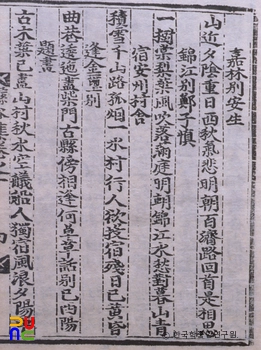 嘉林別安生
山近夕陰重日西秋氣悲明朝百濟路回首是相思
錦江別鄭子慎
一摺葉梨風吹落廟庭明朝錦江水愁對暮山青
宿安州村舍
積雪千山路孤烟一水村行人欲投宿殘日已黃昏
逢金 別
曲巷逶迤盡柴門古縣傍相逢何 喜話別已西陽
題畫
古木葉已盡山村秋水空艤船人獨宿風浪夕陽
한국학중앙연구원